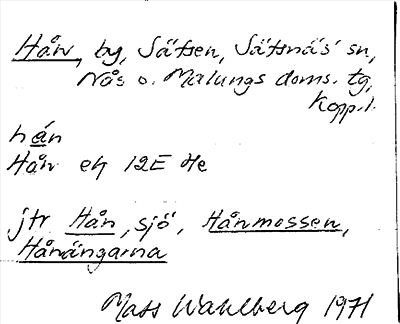 Hån, by, Säfsen, Säfsnäs' sn,
Nås o. Malungs doms. tg,
Kopp.l.
hán
Hån ek 12E He
jfr Hån, sjö, Hånmossen,
Hånängarna
Mats Wahlberg 1971